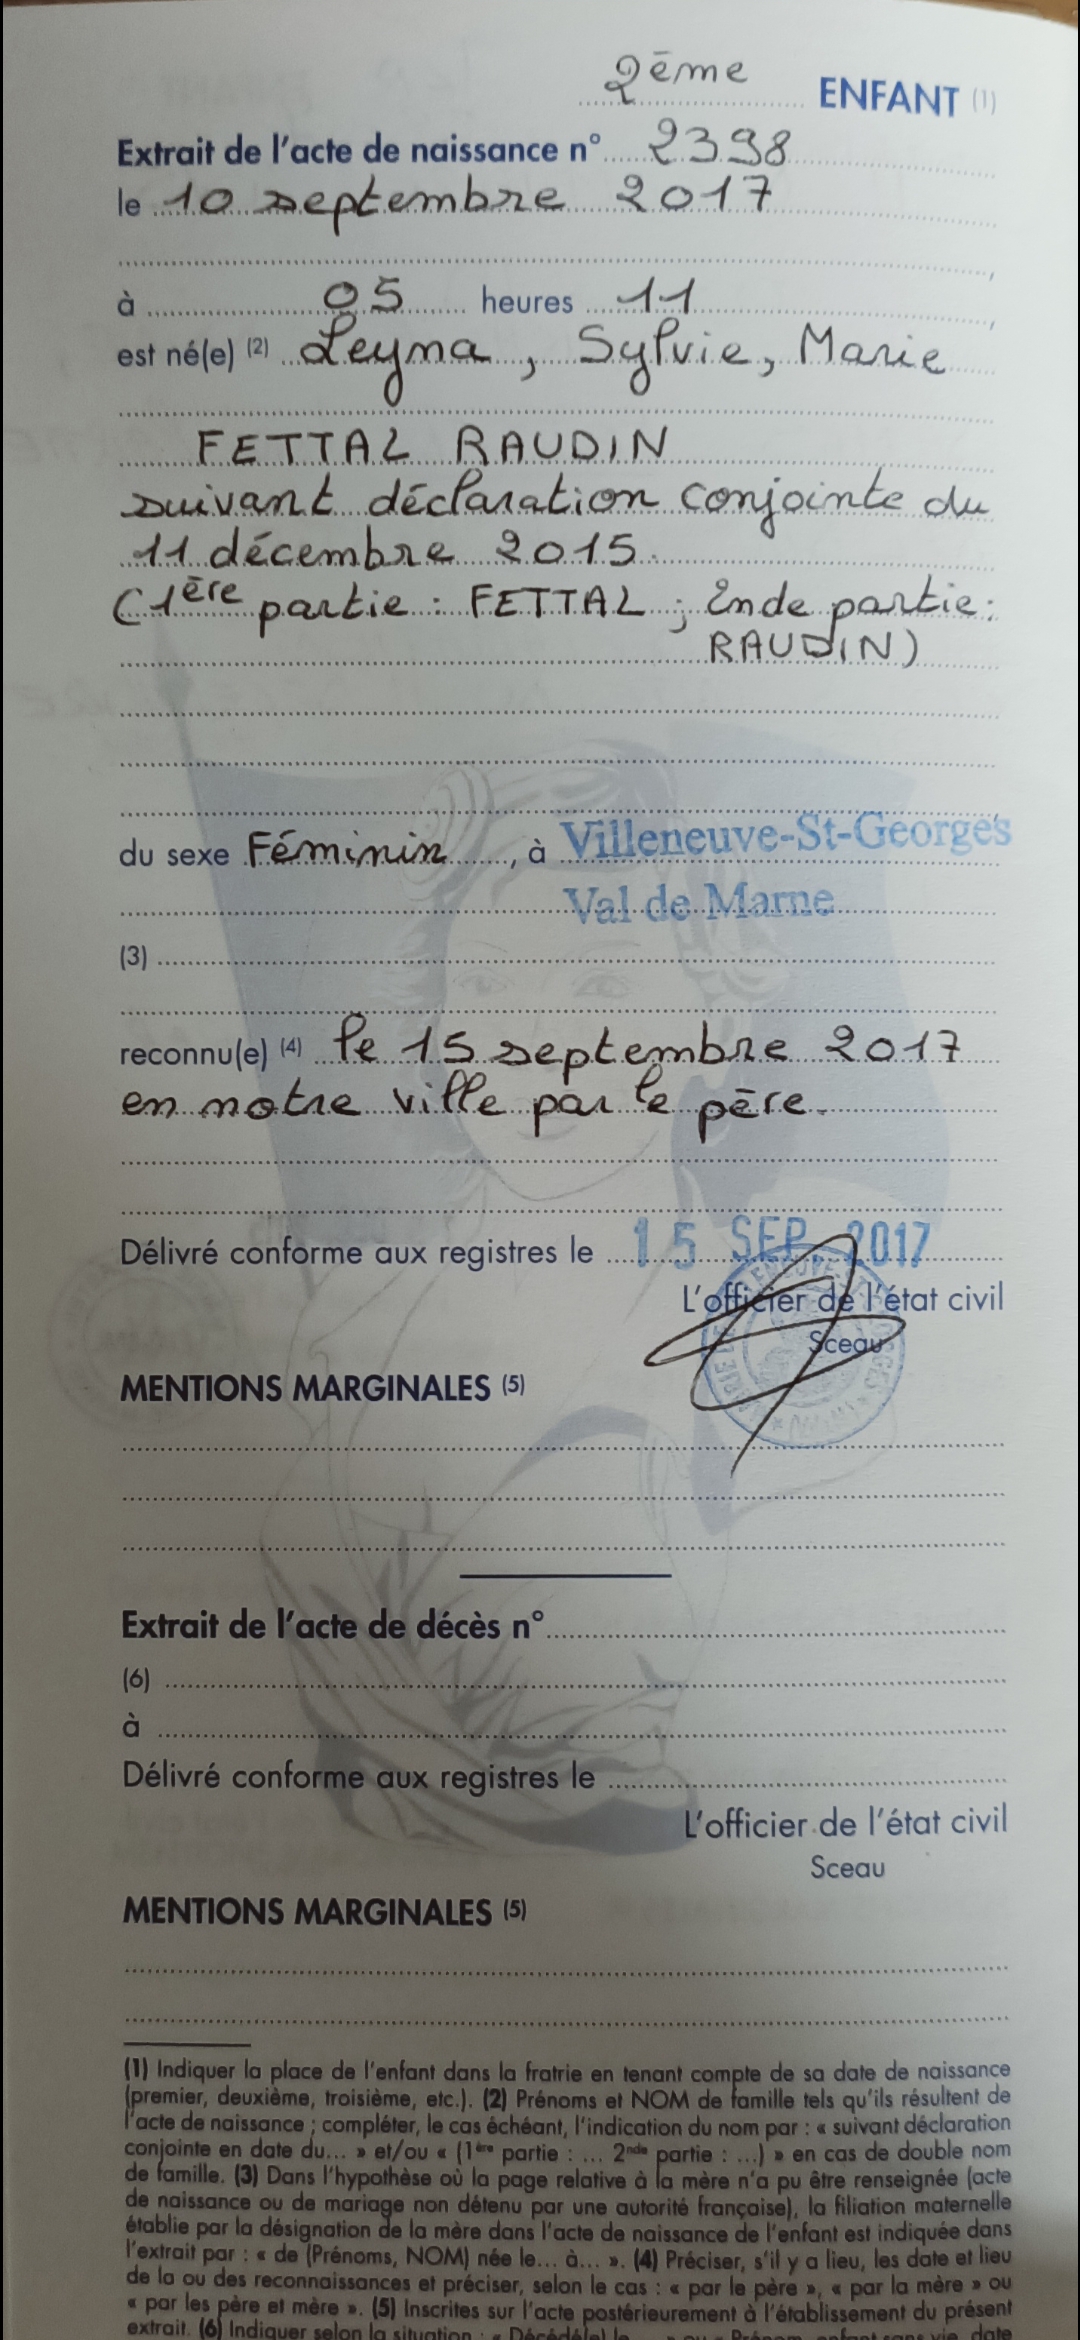 2ème ENFANT (1)
Extrait de l'acte de naissance n° 2398
le 10 septembre 2017
à 05 heures 11
est né(e) (2) Leyna, Sylvie, Marie
FETTAL RAUDIN
suivant déclaration conjointe du
11 décembre 2015.
(1ère partie : FETTAL ; 2nde partie :
RAUDIN)
du sexe Féminin, à Villeneuve-St-Georges
Val de Marne
(3)
reconnu(e) (4) le 15 septembre 2017
en notre ville par le père.
Délivré conforme aux registres le 15 SEP. 2017
L'officier de l'état civil
Sceau
MENTIONS MARGINALES (5)
Extrait de l'acte de décès n°
(6)
à
Délivré conforme aux registres le
L'officier de l'état civil
Sceau
MENTIONS MARGINALES (5)
(1) Indiquer la place de l'enfant dans la fratrie en tenant compte de sa date de naissance
(premier, deuxième, troisième, etc.). (2) Prénoms et NOM de famille tels qu'ils résultent de
l'acte de naissance ; compléter, le cas échéant, l'indication du nom par : « suivant déclaration
conjointe en date du... » et/ou « (1ère partie : ... 2nde partie : ...) » en cas de double nom
de famille. (3) Dans l'hypothèse où la page relative à la mère n'a pu être renseignée (acte
de naissance ou de mariage non détenu par une autorité française), la filiation maternelle
établie par la désignation de la mère dans l'acte de naissance de l'enfant est indiquée dans
l'extrait par : « de (Prénoms, NOM) née le... à... ». (4) Préciser, s'il y a lieu, les date et lieu
de la ou des reconnaissances et préciser, selon le cas : « par le père », « par la mère » ou
« par les père et mère ». (5) Inscrites sur l'acte postérieurement à l'établissement du présent
extrait. (6) Indiquer selon la situation : « Décédé(e) le ... » ou « Prénom, enfant sans vie, date